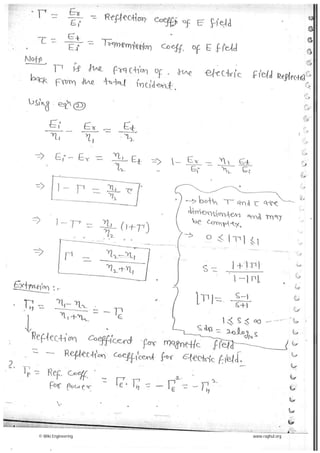 · Γ = Er/Ei = Reflection coeff. of E field
τ = Et/Ei = Transmission coeff. of E field
Note Γ is the fraction of the electric field Reflected
back from the total incident.
Using eqn (22)
Ei/η1 - Er/η1 = Et/η2
⇒ Ei - Er = η1/η2 Et ⇒ 1 - Er/Ei = η1/η2 Et/Ei
⇒ 1 - Γ = η1/η2 τ
⇒ 1 - Γ = η1/η2 (1+Γ)
⇒ Γ = η2-η1/η2+η1
→ both Γ and τ are
dimensionless and may
be complex.
→ 0 ≤ |Γ| ≤ 1
S = 1+|Γ|/1-|Γ|
|Γ| = S-1/S+1
1 ≤ S ≤ ∞
SdB = 20log10S
Extension :-
· Γη = η1-η2/η1+η2 = -ΓE
Reflection Coefficient for magnetic field
= - Reflection coefficient for electric field.
2. ΓP = Ref. Coeff. for power = ΓE · Γη = -ΓE² = -Γη².
© Wiki Engineering
www.raghul.org